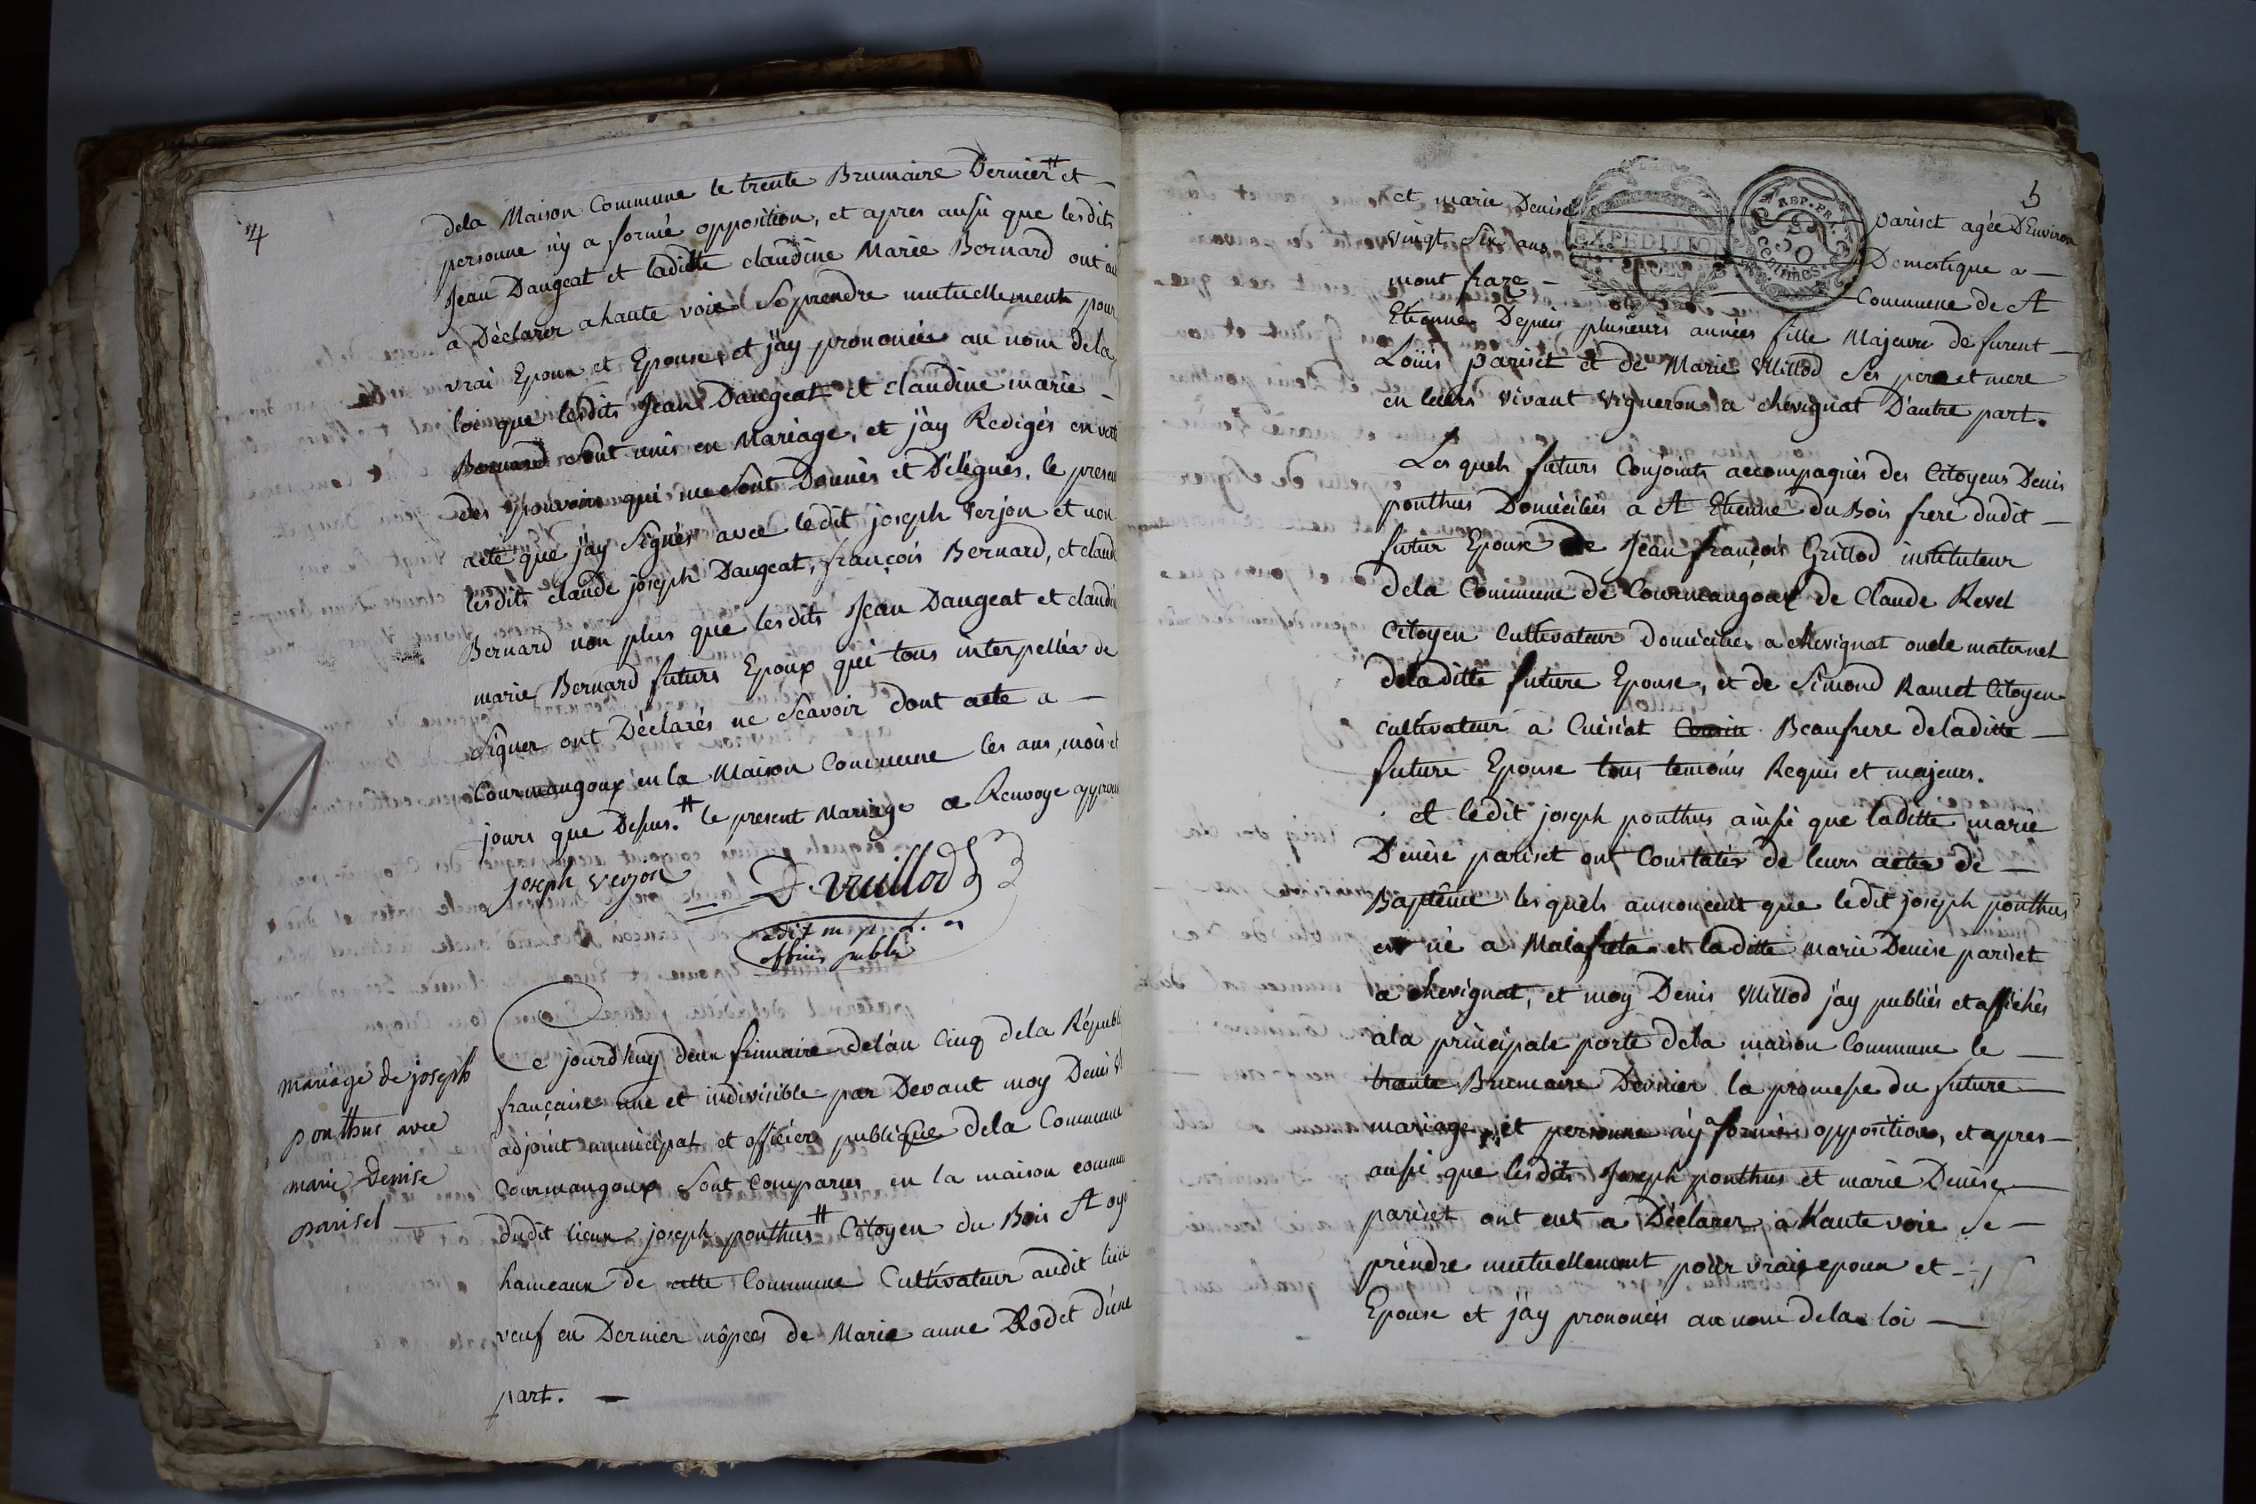 4
dela Maison Commune le trente Brumaire Dernier # et —
personne n'y a formé opposition, et apres aussi que lesdits
Jean Daugeat et laditte claudine Marie Bernard ont eu
a Déclarer a haute voix Se prendre mutuellement pour
vrai Epoux et Epouse, et j'ay prononcées au nom dela
loi que lesdits Jean Daugeat et claudine marie —
Bernard sont unis en Mariage, et j'ay Redigés en vertu
des pouvoirs qui me sont Donnés et Délégués, le present
acte que j'ay Signés avec ledit joseph Verjon et non
lesdits claude joseph Daugeat, françois Bernard, et claude
Bernard non plus que lesdits Jean Daugeat et claudine
marie Bernard futurs Epoux qui tous interpellés de
Signer ont Déclarés ne Scavoir dont acte a —
Courmangoux en la Maison Commune les ans, mois et
jours que Dessus. # le present Mariage a Renvoye approuvé
joseph verjon D. vuillod
adjt m
officier public
mariage de joseph
ponthus avec
marie Denise
pariset —
Ce jourd'huy deux frimaire de l'an Cinq dela Républ
française une et indivisible par Devant moy Denis V
adjoint municipal et officiere publique dela Commune
Courmangoux Sont Comparus en la maison commune
dudit lieux joseph ponthus # Citoyen du Bois St oy
hameaux de cette Commune Cultivateur audit lieu
veuf en Dernier nôpces de Marie anne Rodet d'une
part. —
5
et marie Denise pariset agée D'Environ
vingt Six ans Domestique a —
mont fraze — Commune de St
EXPEDITION
REP. FR.
50
Centimes
Etienne Depuis plusieurs années fille Majeure de furent —
Loüis pariset et de Marie Vuillod Ses pere et mere
en leurs vivant vignerons a chevignat D'autre part.
Les quels futurs Conjoints accompagnés des Citoyens Denis
ponthus Domiciliés a St Etienne du Bois frere dudit —
futur Epouse de Jean françois Grillod instituteur
dela Commune de Courmangoux de Claude Revel
Citoyen Cultivateur domicilie a chevignat oncle maternel
dela ditte future Epouse, et de Simond Ramel Citoyen
cultivateur a Cuisiat Cousin Beaufrere deladitte —
future Epouse tous temoins Requis et majeurs.
et ledit joseph ponthus ainsi que laditte marie
Denise pariset ont Constatés de leurs actes de —
Baptême les quels annoncent que ledit joseph ponthus
est né a Malafreta et laditte marie Denise pariset
a chevignat, et moy Denis Vuillod j'ay publiés et affichés
a la principale porte dela maison Commune le —
trante Brumaire Dernier la promesse du future —
mariage, et personne n'y formés opposition, et apres —
aussi que lesdits Joseph ponthus et marie Denise —
pariset ont eut a Déclarer a Haute voie Se —
prendre mutuellement pour vrais epoux et —
Epouse et j'ay prononcés au nom dela loi —